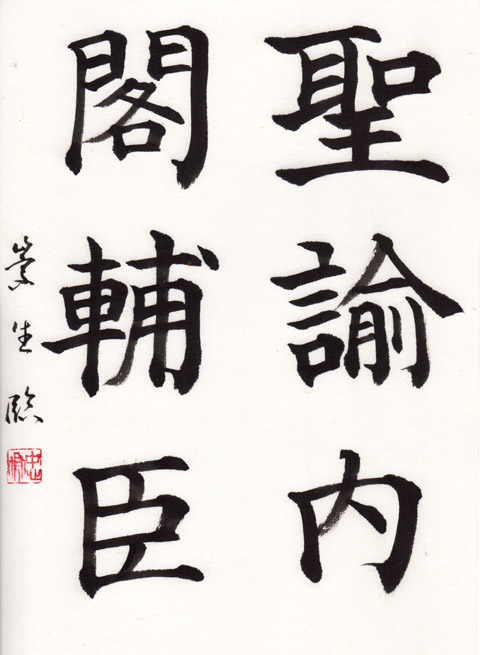 聖諭内
閣輔臣
生臨